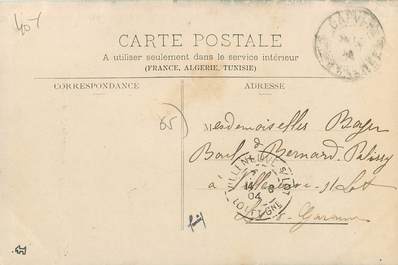 407
CARTE POSTALE
A utiliser seulement dans le service intérieur
(FRANCE, ALGERIE, TUNISIE)
CORRESPONDANCE
ADRESSE
65
Mesdemoiselles Boyer
Boul. Bernard-Palissy
à Villeneuve-s/-Lot
Lot-&-Garonne
VILLENEUVE S/LOT
8
04
LOT-ET-GNE